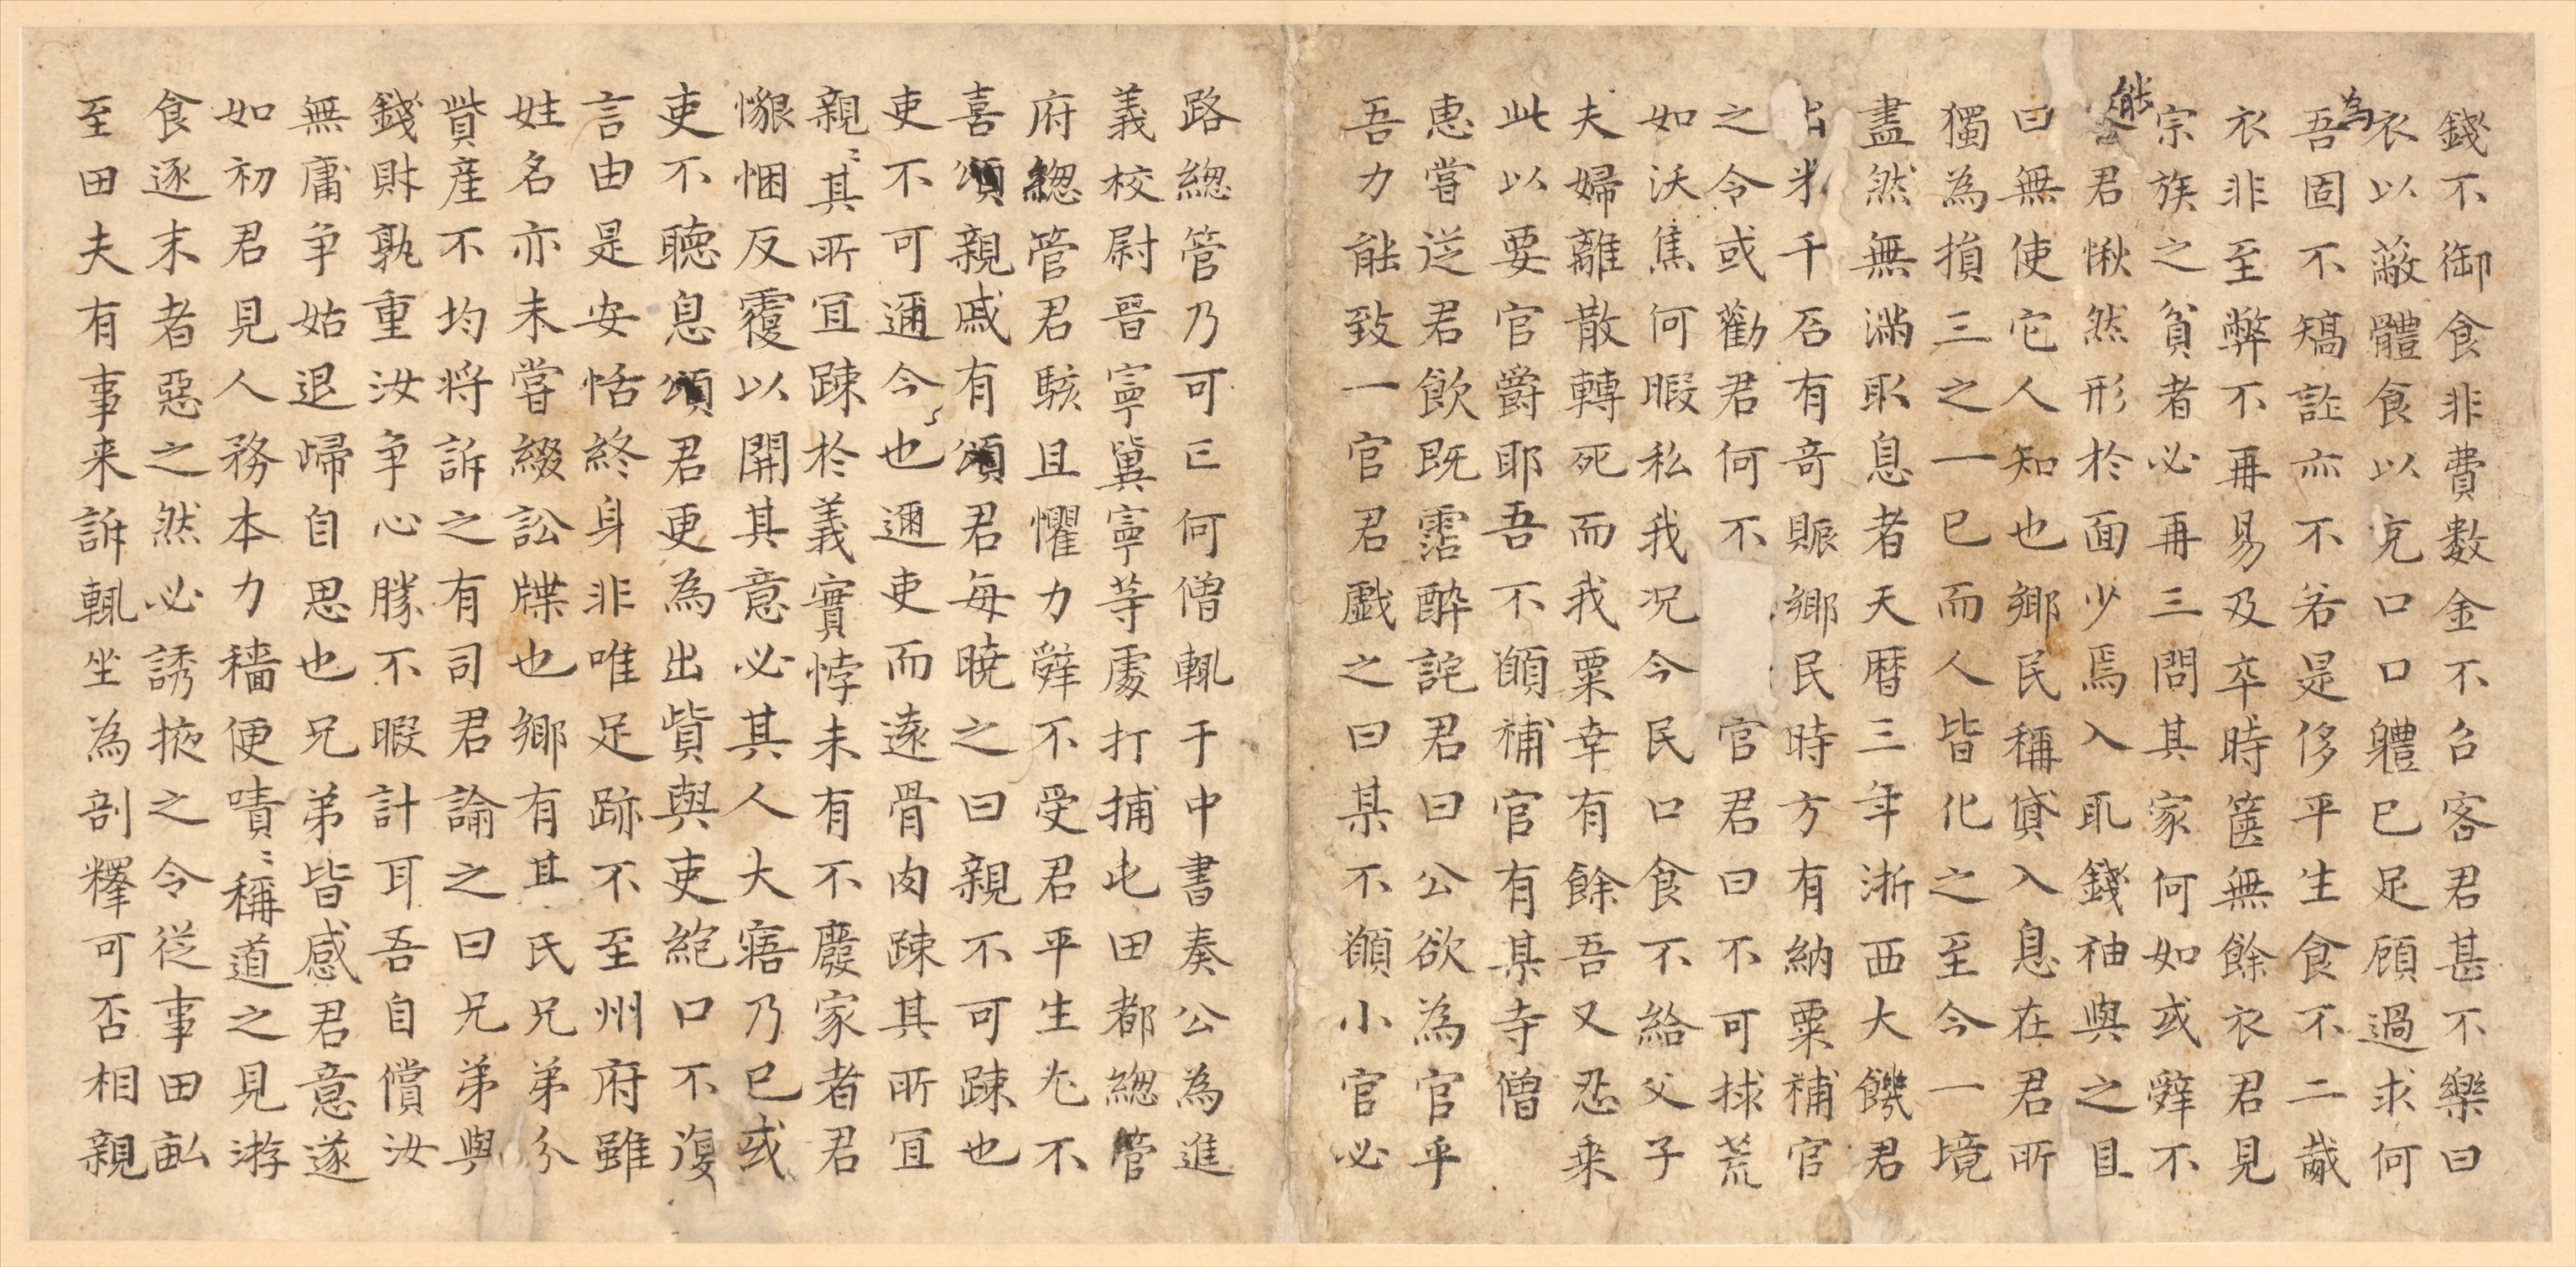 錢不御食非費數金不召客君甚不樂曰
衣以蔽體食以充口口軆已足顧過求何為
吾固不矯詐亦不若是侈平生食不二胾
衣非至弊不再易及卒時篋無餘衣君見
宗族之貧者必再三問其家何如或辤不
能君愀然形於面少焉入取錢袖與之且
曰無使它人知也鄉民稱貸入息在君所
獨為損三之一已而人皆化之至今一境
盡然無滿取息者天曆三年浙西大饑君
出米千石有奇賑鄉民時方有納粟補官
之令或勸君何不官君曰不可捄荒
如沃焦何暇私我況今民口食不給父子
夫婦離散轉死而我粟幸有餘吾又忍乘
此以要官爵耶吾不願補官有某寺僧
惠嘗送君飲既霑醉詫君曰公欲為官乎
吾力能致一官君戲之曰某不願小官必
路總管乃可已何僧輒于中書奏公為進
義校尉晉寧冀寧等處打捕屯田都總管
府總管君駭且懼力辤不受君平生尤不
喜頌親戚有頌君每曉之曰親不可踈也
吏不可邇今也邇吏而遠骨肉踈其所宜
親〻其所宜踈於義實悖未有不廢家者君
懇悃反覆以開其意必其人大寤乃已或
吏不聽息頌君更為出貲與吏絕口不復
言由是安恬終身非唯足跡不至州府雖
姓名亦未嘗綴訟牒也鄉有某氏兄弟分
貲產不均將訴之有司君論之曰兄弟與
錢財孰重汝爭心勝不暇計耳吾自償汝
無庸爭姑退歸自思也兄弟皆感君意遂
如初君見人務本力穡便嘖〻稱道之見游
食逐末者惡之然必誘掖之令從事田畝
至田夫有事来訴輒坐為剖釋可否相親